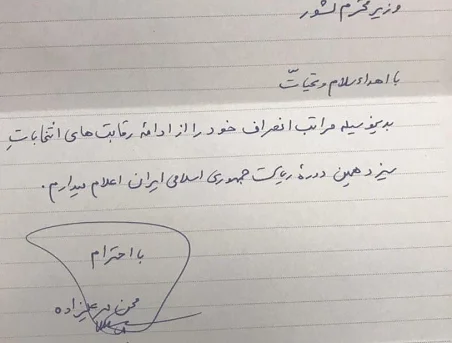 وزیر محترم کشور
با اهداء سلام و تحیات
بدینوسیله مراتب انصراف خود را از ادامه رقابت‌های انتخاباتِ
سیزدهمین دورهٔ ریاست جمهوری اسلامی ایران اعلام میدارم.
با احترام
محسن مهرعلیزاده